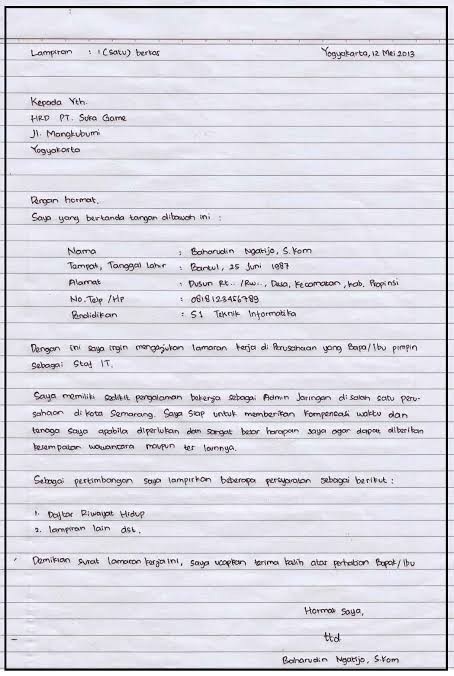 Lampiran : 1 (satu) berkas Yogyakarta, 12 Mei 2013
Kepada Yth.
HRD PT. Suka Game
Jl. Mangkubumi
Yogyakarta
Dengan hormat,
Saya yang bertanda tangan dibawah ini :
Nama : Baharudin Ngatijo, S.Kom
Tempat, Tanggal Lahir : Bantul, 25 Juni 1987
Alamat : Dusun Rt.. /Rw.., Desa, Kecamatan, Kab. Propinsi
No. Telp /HP : 0818123456789
Pendidikan : S1 Teknik Informatika
Dengan ini saya ingin mengajukan lamaran kerja di Perusahaan yang Bapa/Ibu pimpin
sebagai Staf IT.
Saya memiliki sedikit pengalaman bekerja sebagai Admin Jaringan di salah satu peru-
sahaan di kota Semarang. Saya Siap untuk memberikan kompensasi waktu dan
tenaga saya apabila diperlukan dan sangat besar harapan saya agar dapat diberikan
kesempatan wawancara maupun tes lainnya.
Sebagai pertimbangan saya lampirkan beberapa persyaratan sebagai berikut :
1. Daftar Riwayat Hidup
2. lampiran lain dst.
Demikian surat lamaran kerja ini, saya ucapkan terima kasih atas perhatian Bapak/Ibu
Hormat Saya,
ttd
Baharudin Ngatijo, S.Kom